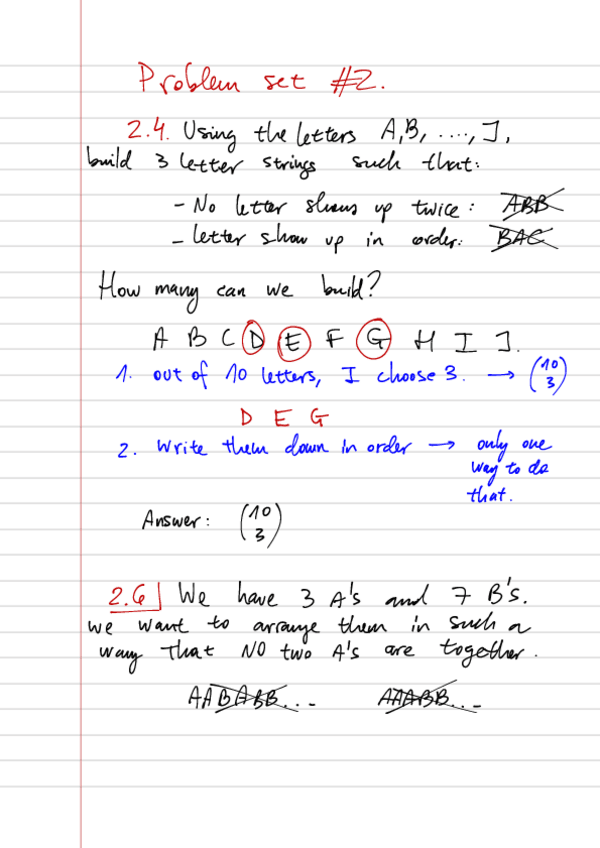 Problem set #2.
2.4. Using the letters A,B, ...., J,
build 3 letter strings such that:
- No letter shows up twice: ABB
- letter show up in order: BAC
How many can we build?
A B C D E F G H I J.
1. out of 10 letters, I choose 3. → (10 3)
D E G
2. Write them down in order → only one
way to do
that.
Answer: (10 3)
2.6 We have 3 A's and 7 B's.
we want to arrange them in such a
way that NO two A's are together.
AABABB... AAABB...